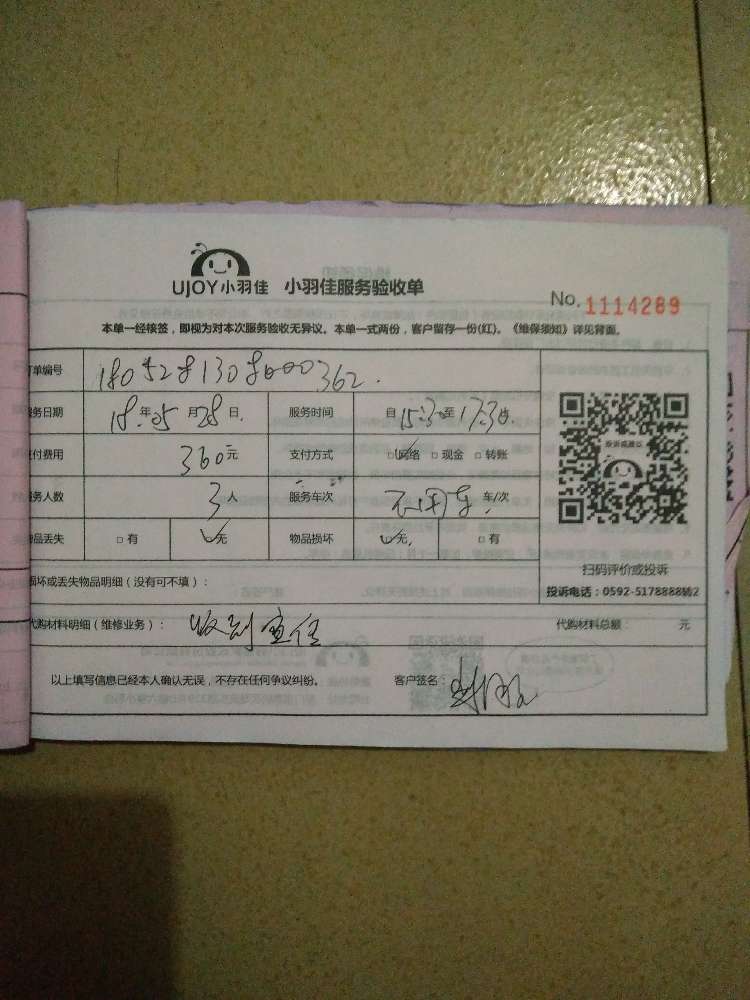 UJOY小羽佳 小羽佳服务验收单
No. 1114289
本单一经核签，即视为对本次服务验收无异议。本单一式两份，客户留存一份(红)。《维保须知》详见背面。
单编号 180528130800362.
务日期 18年05月28日. 服务时间 自15:30至17:30.
付费用 360元 支付方式 □网络 □现金 □转账
务人数 3人 服务车次 不用车 车/次
品丢失 □有 □无 物品损坏 □无. □有
投诉或建议
扫码评价或投诉
投诉电话：0592-5178888转2
损坏或丢失物品明细（没有可不填）：
代购材料明细（维修业务）： 收到 代购材料总额： 元
以上填写信息已经本人确认无误，不存在任何争议纠纷。 客户签名：